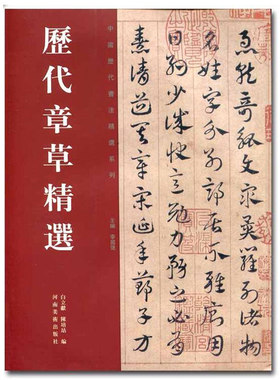 中國歷代書法精選系列
歷代章草精選
主編
白立獻
編
河南美術出版社
急就奇觚與衆異羅列諸物
名姓字分別部居不雜廁用
日約少誠快意勉力務之必有
憙請道其章宋延年鄭子方